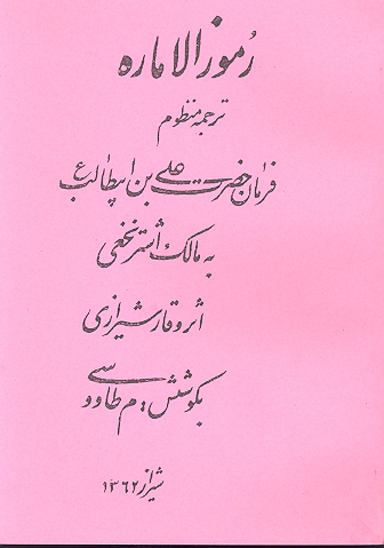 رموز الاماره
ترجمه منظوم
فرمان حضرت علی بن ابیطالب ع
به مالک اشتر نخعی
اثر وقار شیرازی
بکوشش: م طاووسی
شیراز ۱۳۶۲